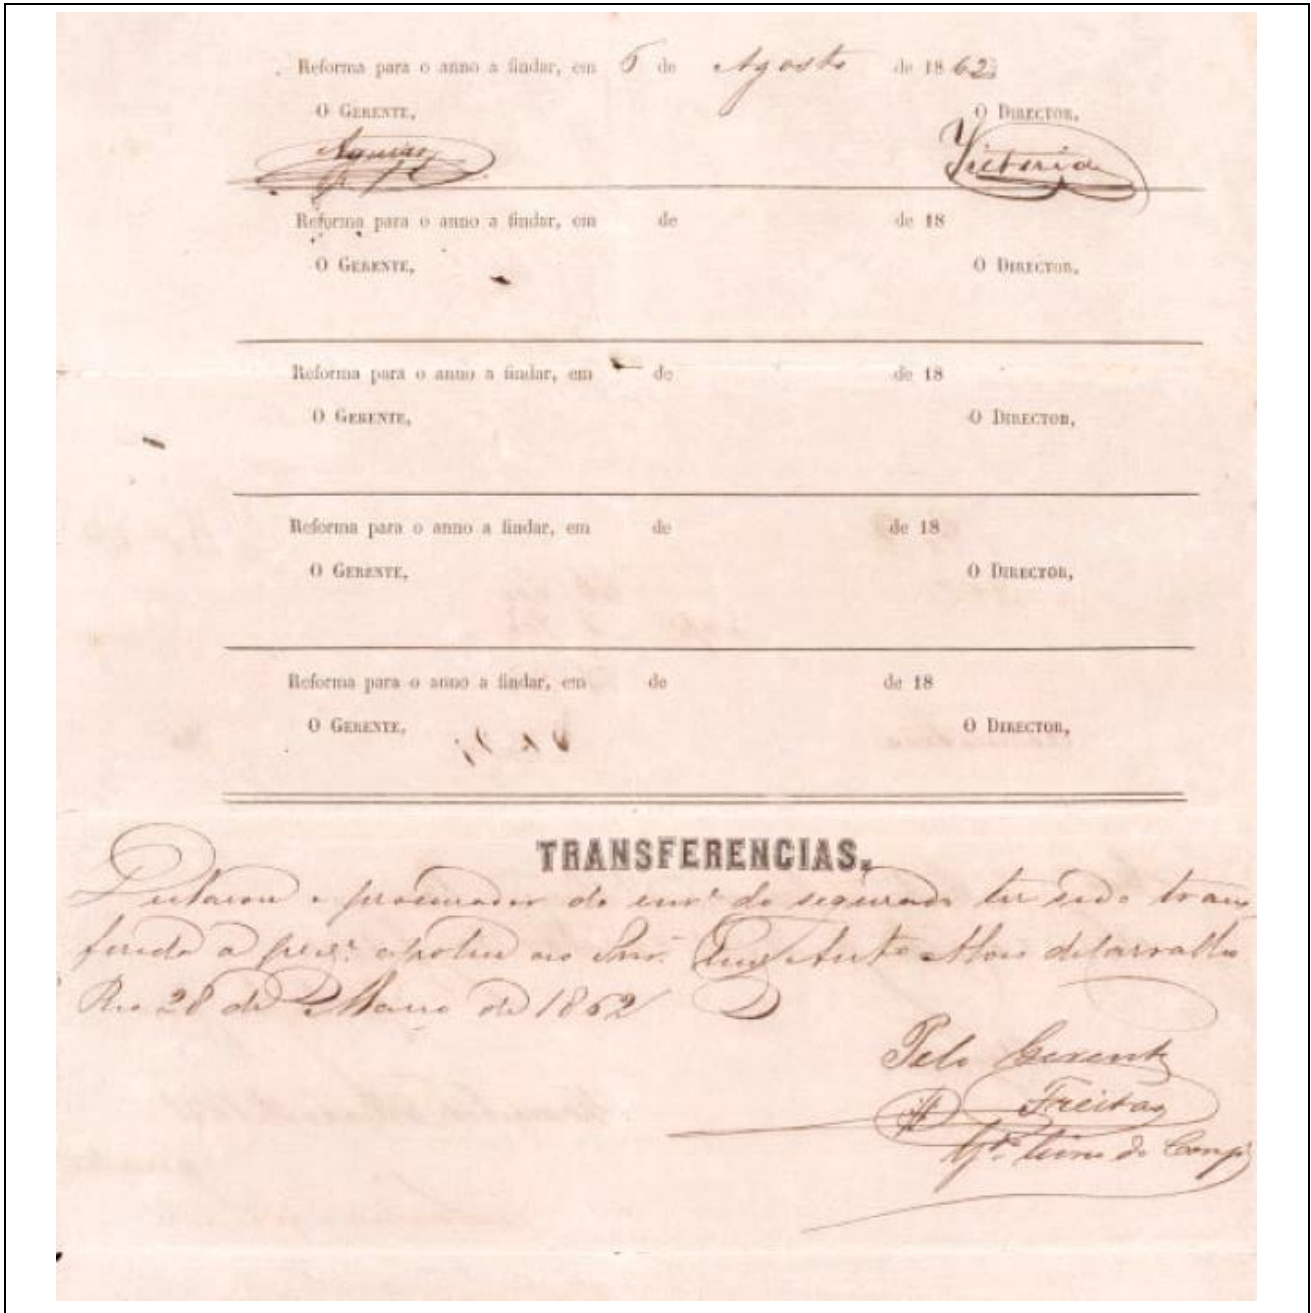 Reforma para o anno a findar, em 6 de Agosto de 1862
O GERENTE, O DIRECTOR,
Victoria
Reforma para o anno a findar, em de de 18
O GERENTE, O DIRECTOR,
Reforma para o anno a findar, em de de 18
O GERENTE, O DIRECTOR,
Reforma para o anno a findar, em de de 18
O GERENTE, O DIRECTOR,
Reforma para o anno a findar, em de de 18
O GERENTE, O DIRECTOR,
TRANSFERENCIAS.
Declarou o procurador do do segurado ter sido trans
ferida a apolice ao Snr. Luiz Anto Alves de Carvalho
Rio 28 de de 1862
Pelo Gerente
Freitas